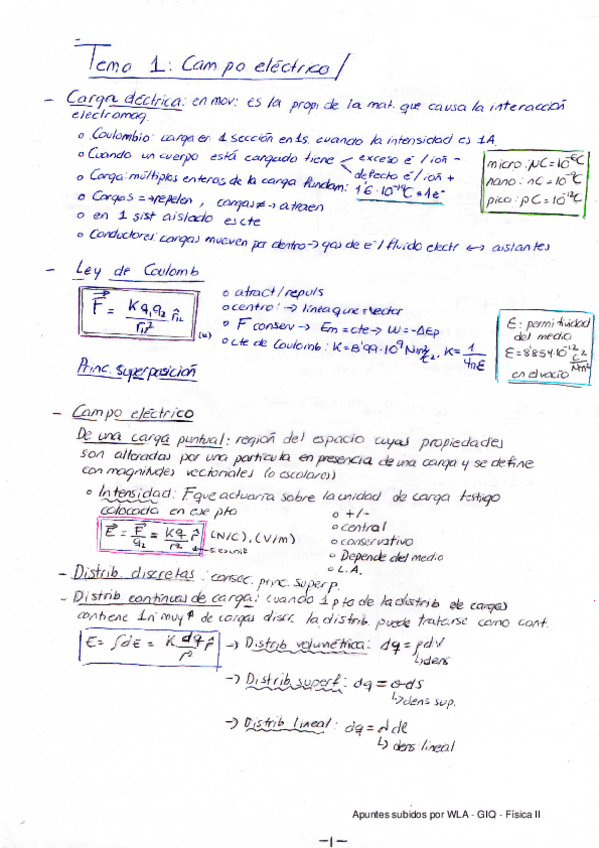 Tema 1: Campo eléctrico
- Carga eléctrica: en mov: es la prop de la mat. que causa la interacción
electromag.
o Coulombio: carga en 1 sección en 1s. cuando la intensidad es 1A.
o Cuando un cuerpo está cargado tiene < exceso e-/ion -
defecto e-/ion +
o Carga: múltiplos enteros de la carga fundam: 1'6·10^-19 C = 1e-
o Cargas = → repelen, cargas ≠ → atraen
o en 1 sist aislado es cte
o Conductores: cargas mueven por dentro → gas de e-/fluido electr ↔ aislantes
micro: μC = 10^-6 C
nano: nC = 10^-9 C
pico: pC = 10^-12 C
- Ley de Coulomb
F = K q1 q2 / r12² r̂12
(N)
o atract/repuls
o central: → línea que vector
o F conserv → Em = cte → W = -ΔEp
o cte de Coulomb: K = 8'99·10^9 Nm²/C². K = 1/4πε
ε: permitividad
del medio
ε = 8'854·10^-12 C²/Nm²
en el vacío
Princ. superposición
- Campo eléctrico
De una carga puntual: región del espacio cuyas propiedades
son alteradas por una partícula en presencia de una carga y se define
con magnitudes vectoriales (o escalares)
o Intensidad: F que actuaría sobre la unidad de carga testigo
colocada en ese pto
E = F/q2 = Kq/r² r̂ (N/C), (V/m)
o +/-
o central
o conservativo
o Depende del medio
o L.A.
- Distrib. discretas: consec. princ. superp.
- Distrib continuas de carga: cuando 1 pto de la distrib de cargas
contiene 1 nº muy ↑ de cargas discr. la distrib. puede tratarse como cont.
E = ∫dE = K dq/r² r̂
→ Distrib volumétrica: dq = ρdV
↳ dens
→ Distrib superf: dq = σ ds
↳ dens sup.
→ Distrib lineal: dq = λ dl
↳ dens lineal
Apuntes subidos por WLA - GIQ - Física II
-1-